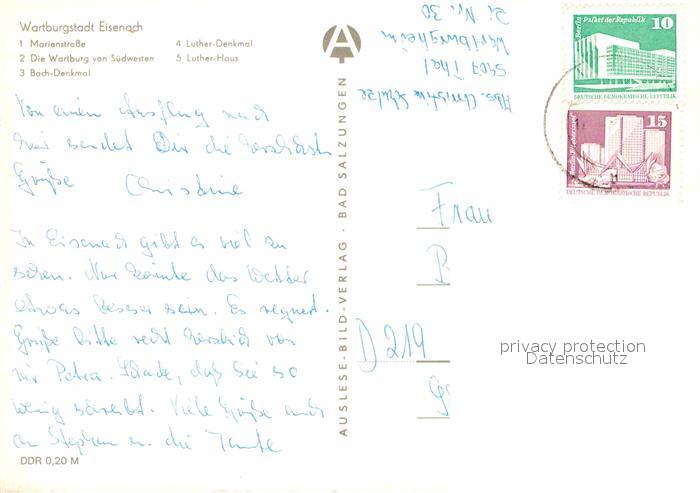 Wartburgstadt Eisenach
1 Marienstraße
2 Die Wartburg von Südwesten
3 Bach-Denkmal
4 Luther-Denkmal
5 Luther-Haus
Von einem Ausflug nach
hier sendet Dir die herzlichsten
Grüße Christine
In Eisenach gibt es viel zu
sehen. Nur könnte das Wetter
etwas besser sein. Es regnet.
Grüße bitte recht herzlich von
mir Petra. Schade, daß sie so
wenig schreibt. Viele Grüße auch
an Stephan u. die Tante
DDR 0,20 M
AUSLESE-BILD-VERLAG · BAD SALZUNGEN
Abs. Christine Schulze
5907 Thal
Zi. Nr. 30
Berlin Palast der Republik 10
DEUTSCHE DEMOKRATISCHE REPUBLIK
15
DEUTSCHE DEMOKRATISCHE REPUBLIK
Frau
D 219
privacy protection
Datenschutz